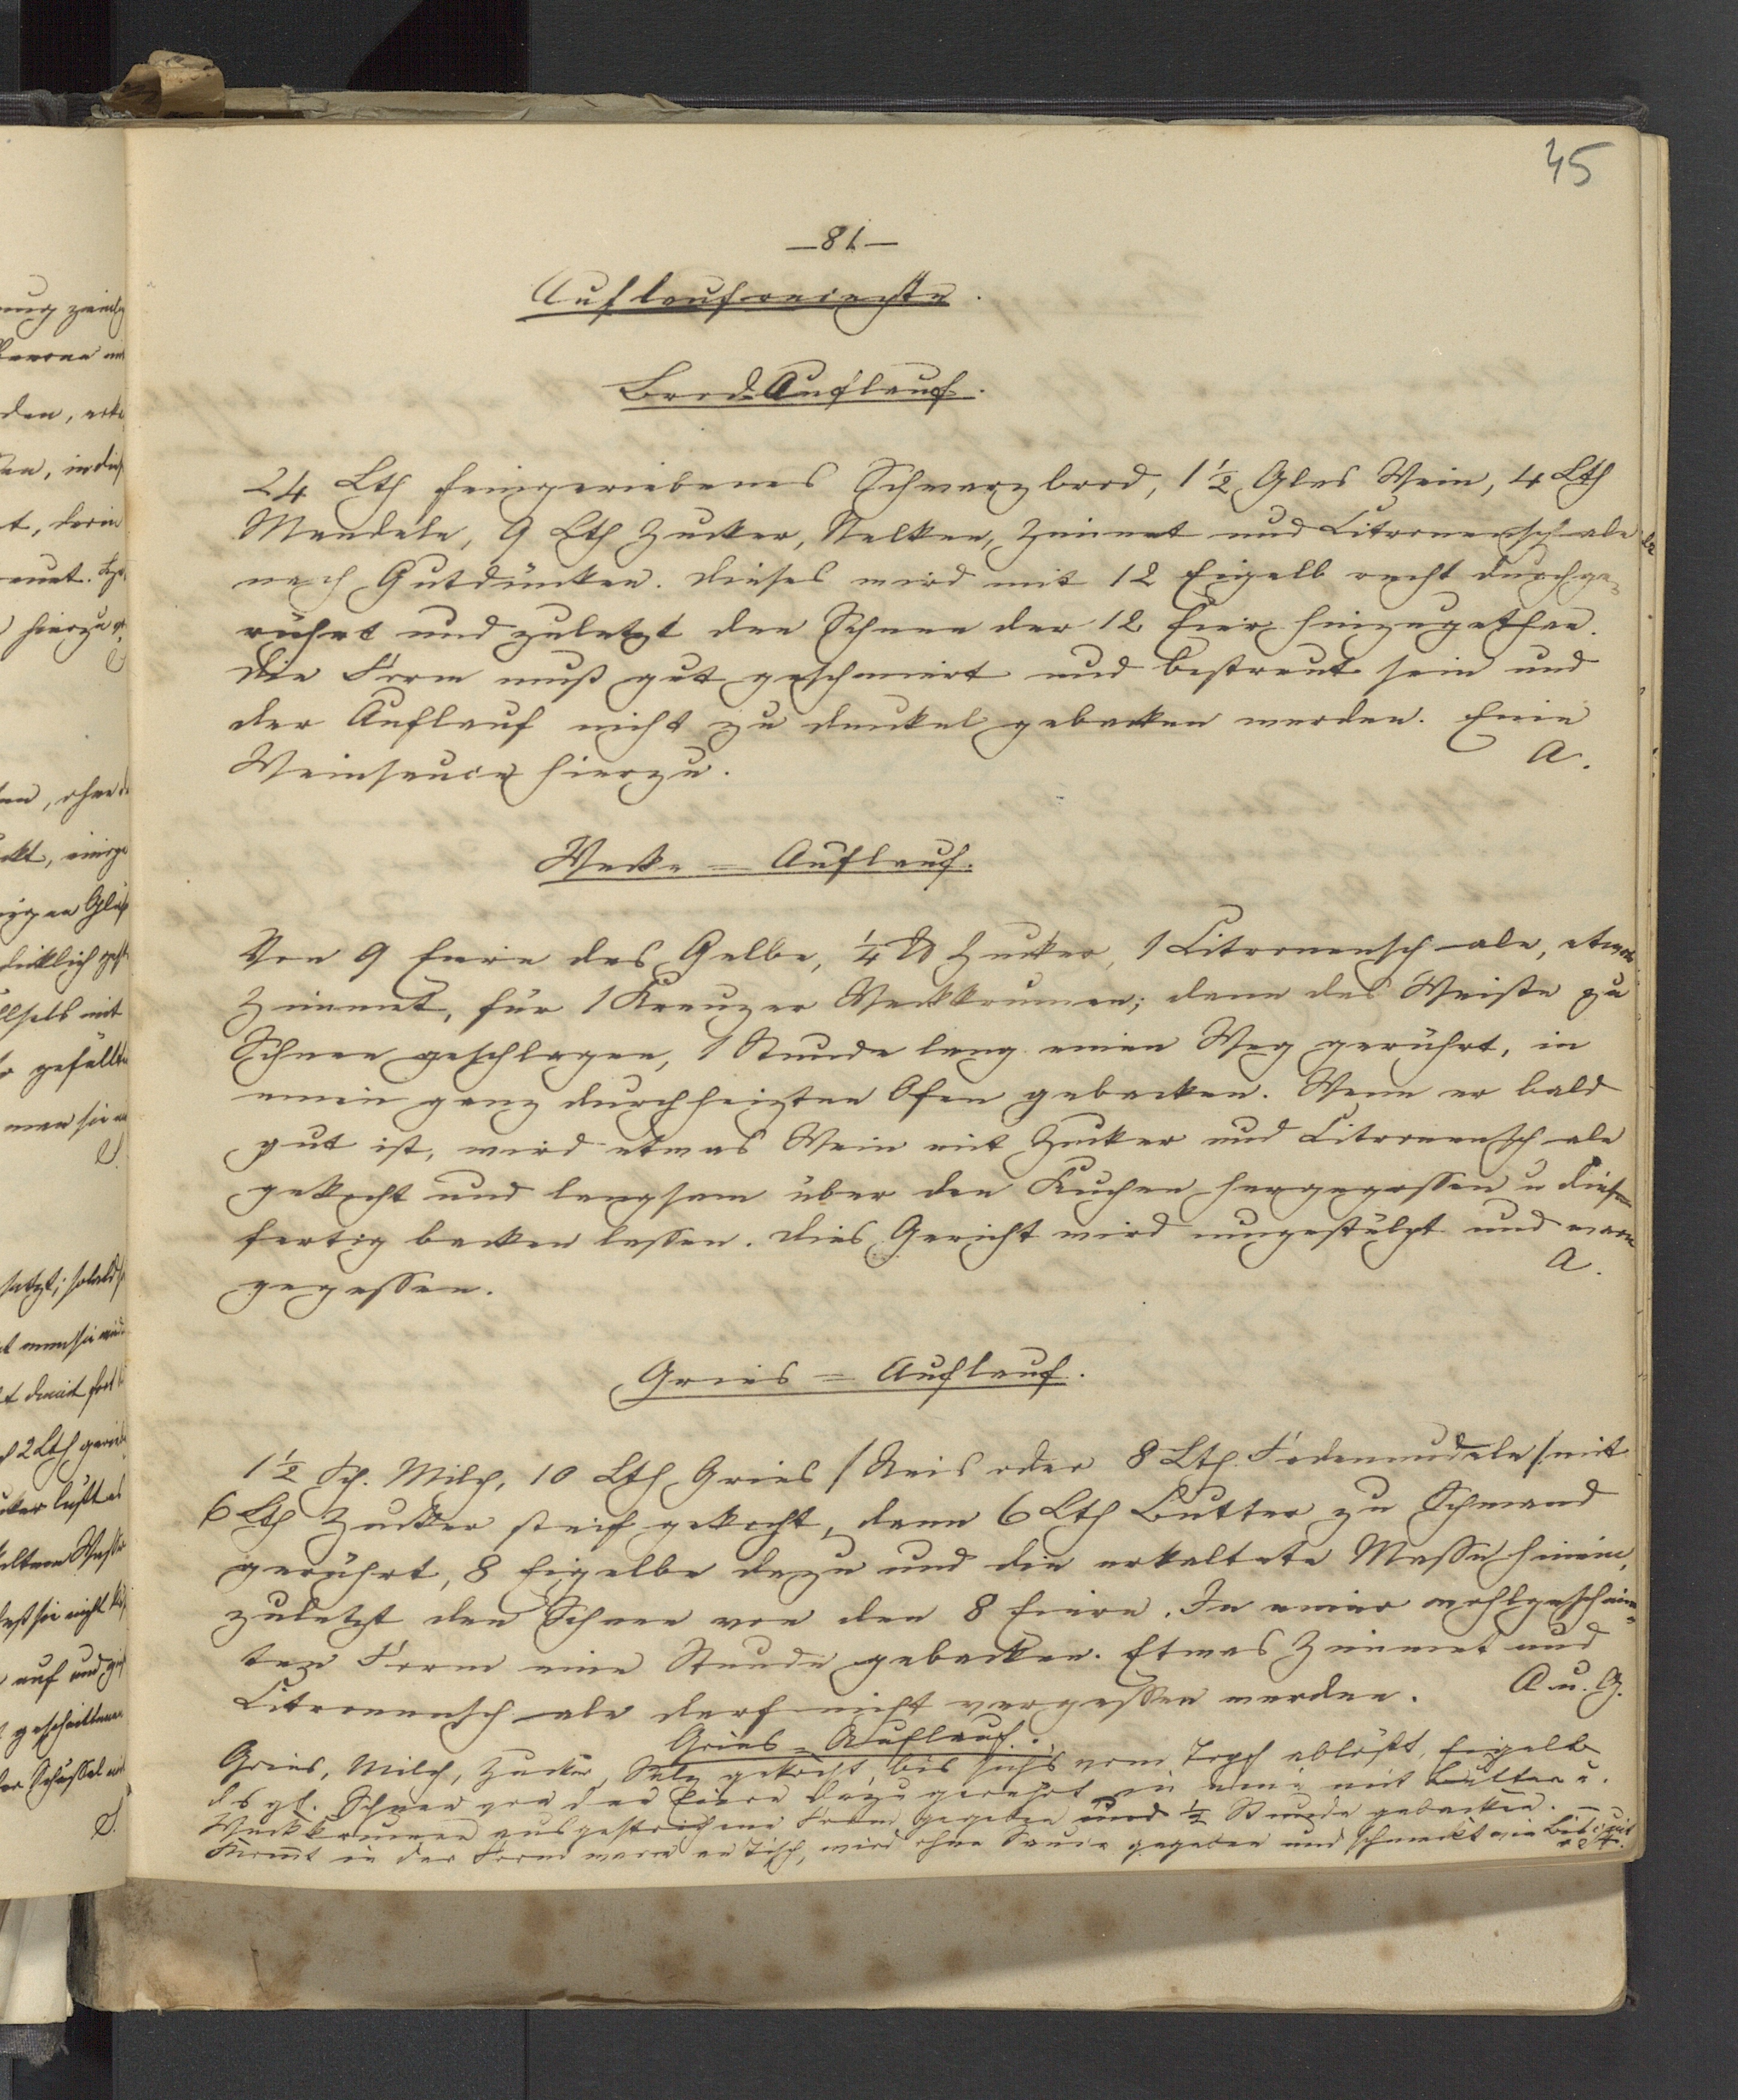 45
—81—
Auflaufrecepte.
Brod-Auflauf.
24 Lth feingeriebenes Schwarzbrod, 1½ Glas Wein, 4 Lth
Mandeln, 9 Lth Zucker, Nelken, Zimmt und Citronenschale
nach Gutdünken. Dieses wird mit 12 Eigelb recht durchge-
rührt und zuletzt den Schnee der 12 Eier hinzugethan.
Die Form muß gut geschmiert und bestreut sein und
der Auflauf nicht zu dunkel gebacken werden. Eine
Weinsauce hierzu. A.
Wecke = Auflauf.
Von 9 Eiern das Gelbe, ¼ ℔ Zucker, 1 Citronenschale, etwas
Zimmet, für 1 Kreuzer Weckkrumen; dann das Weiße zu
Schnee geschlagen, 1 Stunde lang einen Weg gerührt, in
einen ganz durchheizten Ofen gebacken. Wenn er bald
gut ist, wird etwas Wein mit Zucker und Citronenschale
gekocht und langsam über den Kuchen hergegossen u diesen
fertig backen lassen. Dies Gericht wird umgestülpt und warm
gegessen. A.
Gries = Auflauf.
1½ Sch. Milch, 10 Lth Gries / Reis oder 8 Lth Fadennudeln / mit
6 Lth Zucker steif gekocht, dann 6 Lth Butter zu Schmand
gerührt, 8 Eigelbe dazu und die erkaltete Masse hinein,
zuletzt den Schnee von den 8 Eiern. In einer wohlgeschmier-
ten Form eine Stunde gebacken. Etwas Zimmet und
Citronenschale darf nicht vergessen werden. A u. G.
Gries = Auflauf.
Gries, Milch, Zucker, Salz gekocht, bis sichs vom Topf ablößt, Eigelb
dsgl. Schnee von den Eiern dazu gerührt in eine mit Butter u.
Weckkrumen ausgestrichene Form gegeben und ½ Stunde gebacken. —
Kommt in der Form warm an Tisch, wird ohne Sauce gegeben und schmeckt wie Biscuit